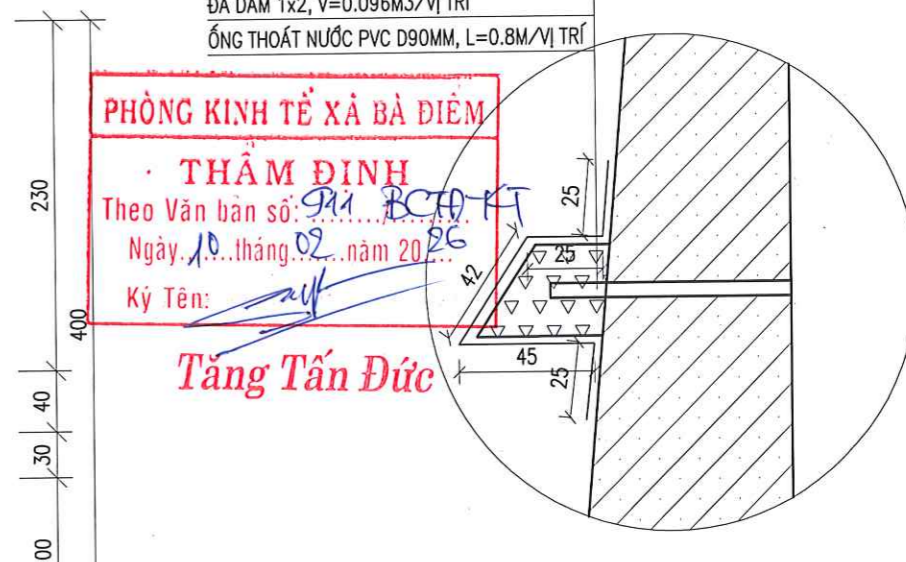 ĐÁ DĂM 1x2, V=0.096M3/VỊ TRÍ
ỐNG THOÁT NƯỚC PVC D90MM, L=0.8M/VỊ TRÍ
PHÒNG KINH TẾ XÃ BÀ ĐIỂM
THẨM ĐỊNH
Theo Văn bản số: 911 BCTĐ-KT
Ngày 10 tháng 02 năm 2026
Ký Tên:
Tăng Tấn Đức
230
400
40
30
00
25
25
42
45
25